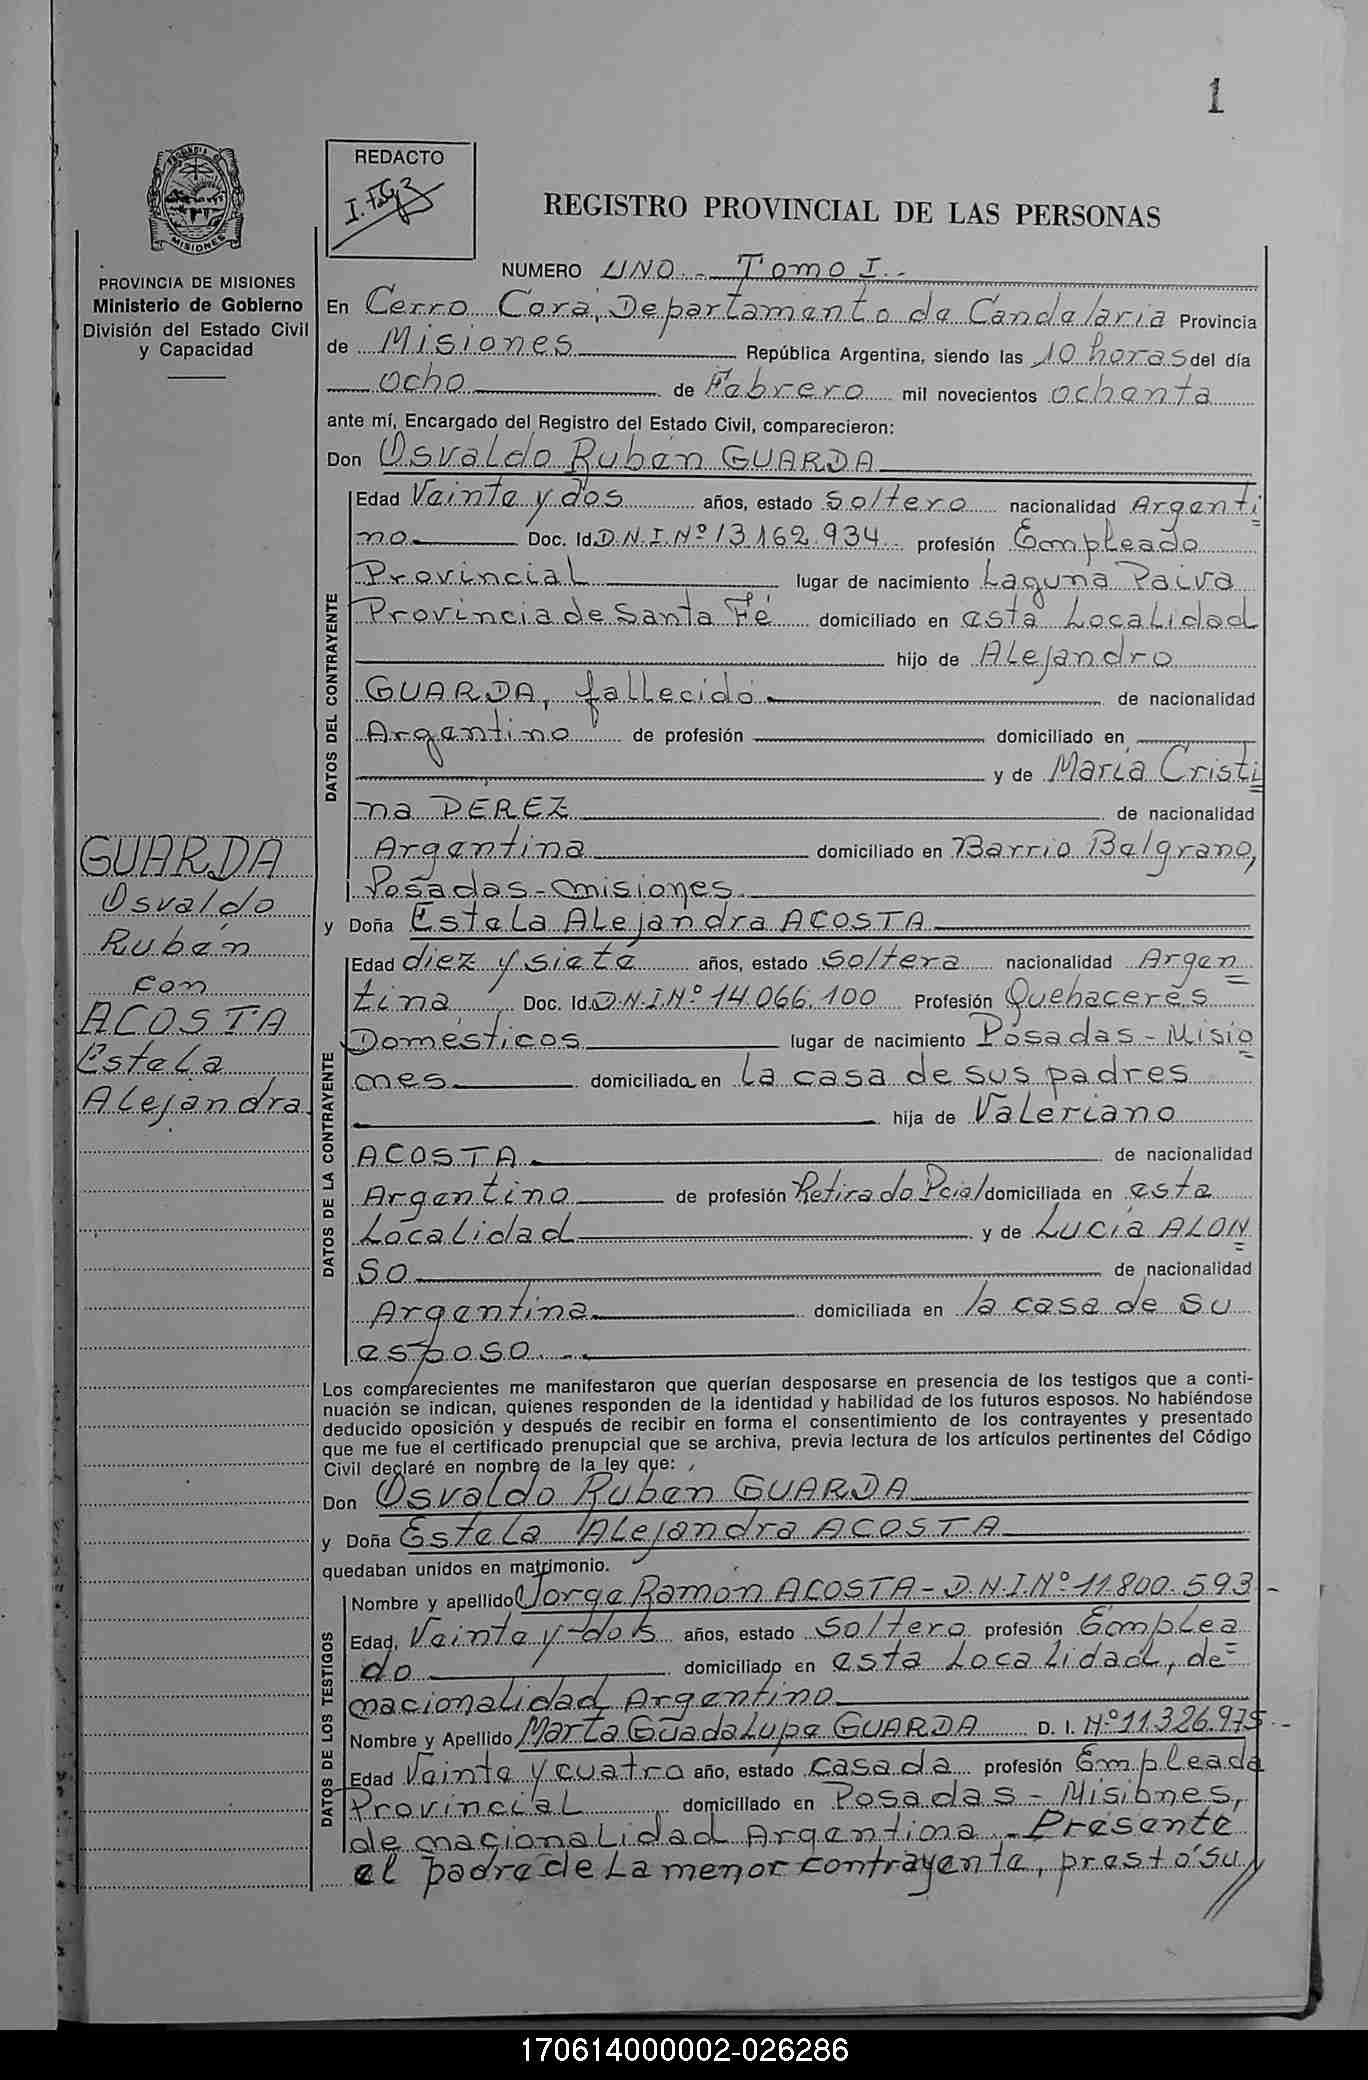 1
REDACTO
PROVINCIA DE MISIONES
Ministerio de Gobierno
División del Estado Civil
y Capacidad
REGISTRO PROVINCIAL DE LAS PERSONAS
NUMERO UNO.- Tomo I.-
En Cerro Corá, Departamento de Candelaria Provincia
de Misiones República Argentina, siendo las 10 horas del día
ocho de Febrero mil novecientos ochenta
ante mí, Encargado del Registro del Estado Civil, comparecieron:
Don Osvaldo Rubén GUARDA
DATOS DEL CONTRAYENTE
Edad Veinte y dos años, estado soltero nacionalidad Argenti
no Doc. Id. D.N.I.Nº 13.162.934 profesión Empleado
Provincial lugar de nacimiento Laguna Paiva
Provincia de Santa Fé domiciliado en esta Localidad
hijo de Alejandro
GUARDA, fallecido de nacionalidad
Argentino de profesión domiciliado en
y de María Cristi
na PEREZ de nacionalidad
Argentina domiciliado en Barrio Belgrano,
Posadas-misiones.
y Doña Estela Alejandra ACOSTA
DATOS DE LA CONTRAYENTE
Edad diez y siete años, estado soltera nacionalidad Argen
tina Doc. Id. D.N.I.Nº 14.066.100 Profesión Quehaceres
Domésticos lugar de nacimiento Posadas - Misio
nes domiciliada en La casa de sus padres
hija de Valeriano
ACOSTA de nacionalidad
Argentino de profesión Retirado Pcial domiciliada en esta
Localidad y de Lucía ALON
SO de nacionalidad
Argentina domiciliada en la casa de su
esposo.-
Los comparecientes me manifestaron que querían desposarse en presencia de los testigos que a conti-
nuación se indican, quienes responden de la identidad y habilidad de los futuros esposos. No habiéndose
deducido oposición y después de recibir en forma el consentimiento de los contrayentes y presentado
que me fue el certificado prenupcial que se archiva, previa lectura de los artículos pertinentes del Código
Civil declaré en nombre de la ley que:
Don Osvaldo Rubén GUARDA
y Doña Estela Alejandra ACOSTA
quedaban unidos en matrimonio.
DATOS DE LOS TESTIGOS
Nombre y apellido Jorge Ramón ACOSTA - D.N.I.Nº 11.800.593.-
Edad, Veinte y dos años, estado soltero profesión Emplea
do domiciliado en esta Localidad, de
nacionalidad Argentino
Nombre y Apellido Marta Guadalupe GUARDA D. I. Nº 11.326.975.-
Edad Veinte y cuatro año, estado casada profesión Empleada
Provincial domiciliado en Posadas - Misiones,
de nacionalidad Argentina.- Presente
el padre de La menor contrayente, prestó su //
GUARDA
Osvaldo
Rubén
con
ACOSTA
Estela
Alejandra
170614000002-026286